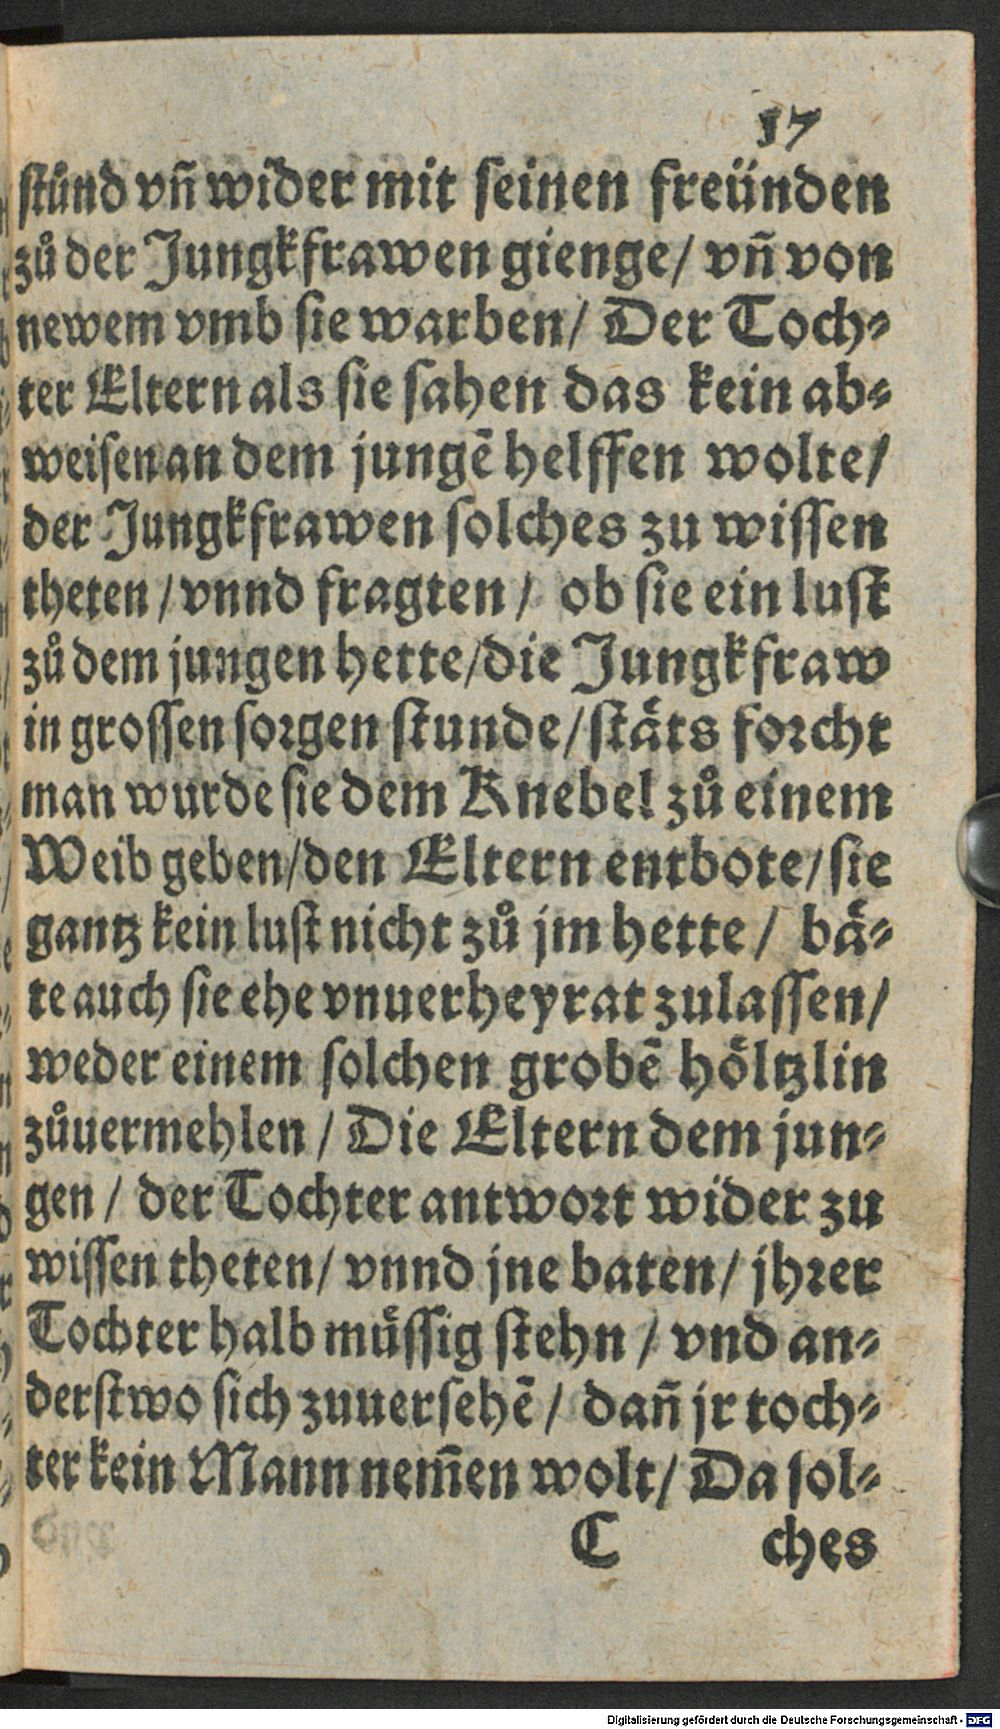 17
stůnd vñ wider mit seinen freünden
zů der Jungkfrawen gienge/ vñ von
newem vmb sie warben/ Der Toch⸗
ter Eltern als sie sahen das kein ab⸗
weisen an dem jungẽ helffen wolte/
der Jungkfrawen solches zu wissen
theten/ vnnd fragten/ ob sie ein lust
zů dem jungen hette/die Jungkfraw
in grossen sorgen stunde/ stäts forcht
man wurde sie dem Knebel zů einem
Weib geben/den Eltern entbote/sie
gantz kein lust nicht zů jm hette/ bä⸗
te auch sie ehe vnuerheyrat zulassen/
weder einem solchen grobẽ höltzlin
zůuermehlen/ Die Eltern dem jun⸗
gen/ der Tochter antwort wider zu
wissen theten/ vnnd jne baten/ jhrer
Tochter halb müssig stehn/ vnd an⸗
derstwo sich zuuersehẽ/ dañ jr toch⸗
ter kein Mann nem̃en wolt/ Da sol⸗
C ches
Digitalisierung gefördert durch die Deutsche Forschungsgemeinschaft - DFG